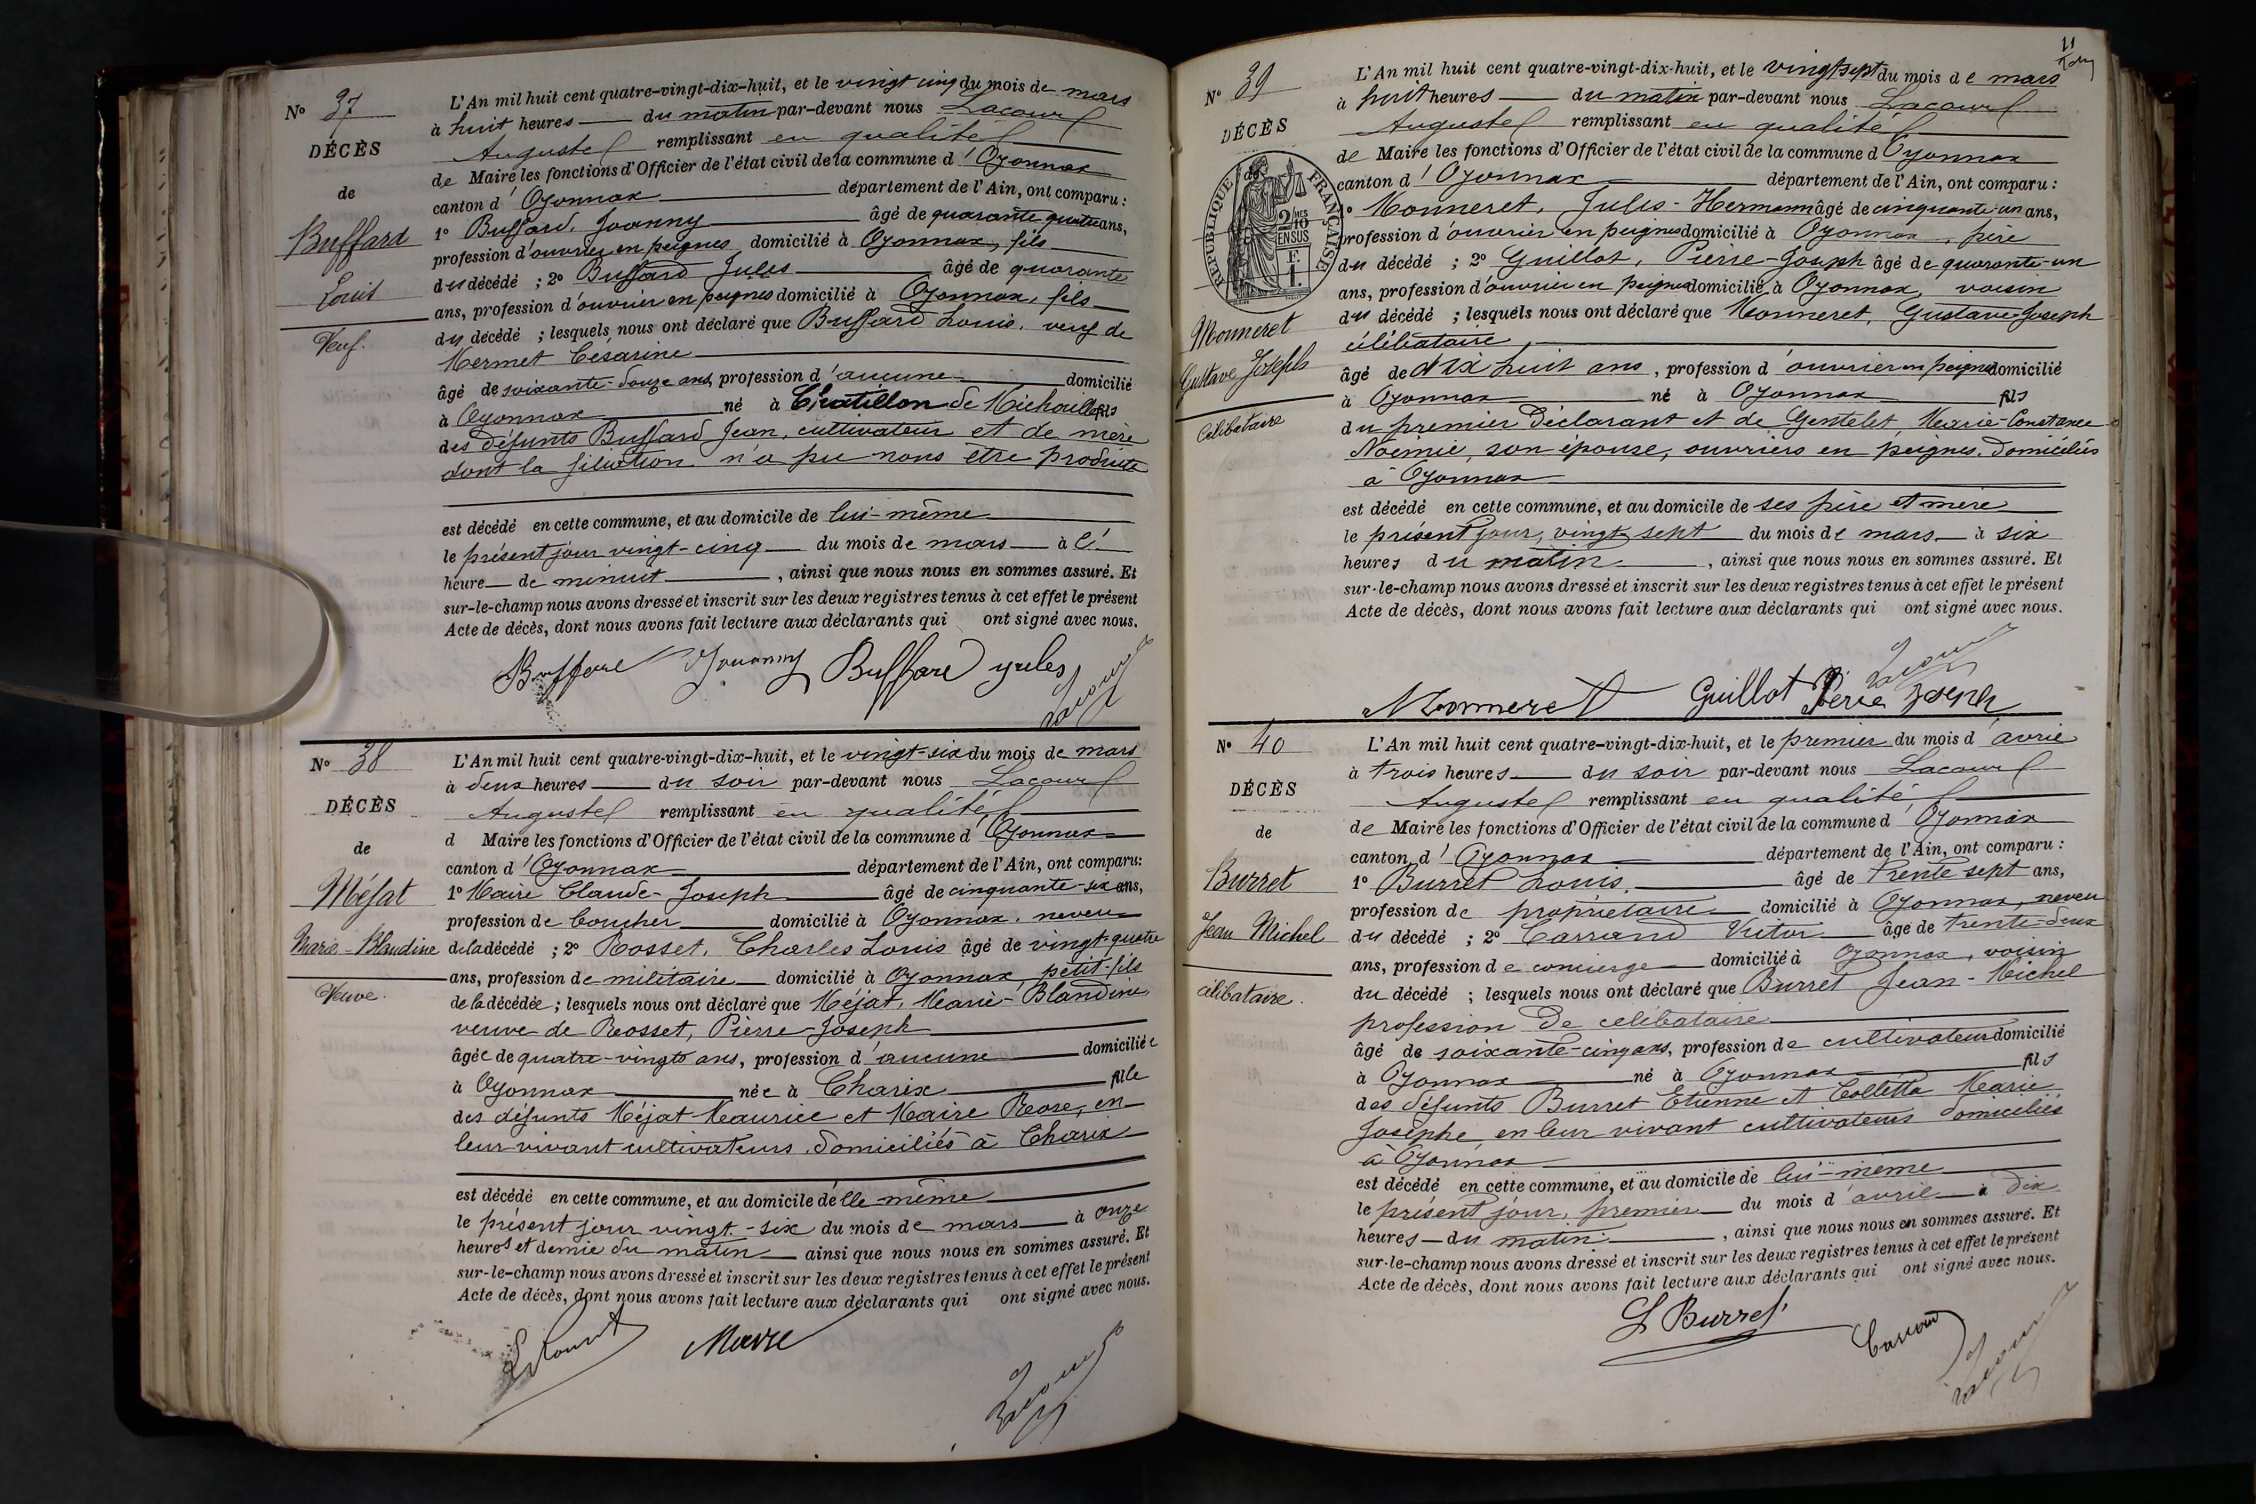 Nº 37
DÉCÈS
de
Buffard
Louis
Veuf.
L'An mil huit cent quatre-vingt-dix-huit, et le vingt cinq du mois de mars
à huit heures du matin par-devant nous Lacour
Auguste remplissant en qualité
de Maire les fonctions d'Officier de l'état civil de la commune d'Oyonnax
canton d'Oyonnax département de l'Ain, ont comparu :
1º Buffard, Joanny âgé de quarante quatre ans,
profession d'ouvrier en peignes domicilié à Oyonnax, fils
du décédé ; 2º Buffard Jules âgé de quarante
ans, profession d'ouvrier en peignes domicilié à Oyonnax, fils
du décédé ; lesquels nous ont déclaré que Buffard Louis, veuf de
Mermet Césarine
âgé de soixante-douze ans, profession d'aucune domicilié
à Oyonnax né à Châtillon de Michaille fils
des défunts Buffard Jean, cultivateur et de mère
dont la filiation n'a pu nous être produite
est décédé en cette commune, et au domicile de lui-même
le présent jour vingt-cinq du mois de mars à l'
heure de minuit, ainsi que nous nous en sommes assuré. Et
sur-le-champ nous avons dressé et inscrit sur les deux registres tenus à cet effet le présent
Acte de décès, dont nous avons fait lecture aux déclarants qui ont signé avec nous.
Buffard Joanny Buffard Jules Lacour
Nº 38
DÉCÈS
de
Méjat
Marie-Blandine
Veuve.
L'An mil huit cent quatre-vingt-dix-huit, et le vingt-six du mois de mars
à deux heures du soir par-devant nous Lacour
Auguste remplissant en qualité
d Maire les fonctions d'Officier de l'état civil de la commune d'Oyonnax
canton d'Oyonnax département de l'Ain, ont comparu:
1º Maire Claude-Joseph âgé de cinquante-six ans,
profession de boucher domicilié à Oyonnax, neveu
de la décédé ; 2º Rosset, Charles Louis âgé de vingt-quatre
ans, profession de militaire domicilié à Oyonnax, petit-fils
de la décédée ; lesquels nous ont déclaré que Méjat, Marie-Blandine
veuve de Rosset, Pierre-Joseph
âgée de quatre-vingts ans, profession d'aucune domiciliée
à Oyonnax née à Charix fille
des défunts Méjat Maurice et Maire Rose, en
leur vivant cultivateurs, domiciliés à Charix
est décédé en cette commune, et au domicile d'elle-même
le présent jour vingt-six du mois de mars à onze
heures et demie du matin ainsi que nous nous en sommes assuré. Et
sur-le-champ nous avons dressé et inscrit sur les deux registres tenus à cet effet le présent
Acte de décès, dont nous avons fait lecture aux déclarants qui ont signé avec nous.
Maire
Lacour
11
Nº 39
DÉCÈS
de
RÉPUBLIQUE FRANÇAISE
2/10 EN SUS
1 F.
Monneret
Gustave Joseph
Célibataire
L'An mil huit cent quatre-vingt-dix-huit, et le vingt sept du mois de mars
à huit heures du matin par-devant nous Lacour
Auguste remplissant en qualité
de Maire les fonctions d'Officier de l'état civil de la commune d'Oyonnax
canton d'Oyonnax département de l'Ain, ont comparu :
1º Monneret, Jules-Hermann âgé de cinquante-un ans,
profession d'ouvrier en peignes domicilié à Oyonnax, père
du décédé ; 2º Guillot, Pierre-Joseph âgé de quarante-un
ans, profession d'ouvrier en peignes domicilié à Oyonnax, voisin
du décédé ; lesquels nous ont déclaré que Monneret, Gustave-Joseph
célibataire,
âgé de dix huit ans, profession d'ouvrier en peignes domicilié
à Oyonnax né à Oyonnax fils
du premier déclarant et de Gentelet, Marie-Constance
Noémie, son épouse, ouvriers en peignes, domiciliés
à Oyonnax
est décédé en cette commune, et au domicile de ses père et mère
le présent jour, vingt sept du mois de mars à six
heures du matin, ainsi que nous nous en sommes assuré. Et
sur-le-champ nous avons dressé et inscrit sur les deux registres tenus à cet effet le présent
Acte de décès, dont nous avons fait lecture aux déclarants qui ont signé avec nous.
Lacour
Monneret Guillot Pierre Joseph
Nº 40
DÉCÈS
de
Burret
Jean Michel
célibataire.
L'An mil huit cent quatre-vingt-dix-huit, et le premier du mois d'avril
à trois heures du soir par-devant nous Lacour
Auguste remplissant en qualité
de Maire les fonctions d'Officier de l'état civil de la commune d'Oyonnax
canton d'Oyonnax département de l'Ain, ont comparu :
1º Burret Louis, âgé de trente sept ans,
profession de propriétaire domicilié à Oyonnax, neveu
du décédé ; 2º Carrand Victor âgé de trente-deux
ans, profession de concierge domicilié à Oyonnax, voisin
du décédé ; lesquels nous ont déclaré que Burret Jean-Michel
profession de célibataire
âgé de soixante-cinq ans, profession de cultivateur domicilié
à Oyonnax né à Oyonnax fils
des défunts Burret Etienne et Colletta Marie
Josephe, en leur vivant cultivateurs domiciliés
à Oyonnax
est décédé en cette commune, et au domicile de lui-même
le présent jour, premier du mois d'avril à dix
heures du matin, ainsi que nous nous en sommes assuré. Et
sur-le-champ nous avons dressé et inscrit sur les deux registres tenus à cet effet le présent
Acte de décès, dont nous avons fait lecture aux déclarants qui ont signé avec nous.
L Burret
Carrand
Lacour